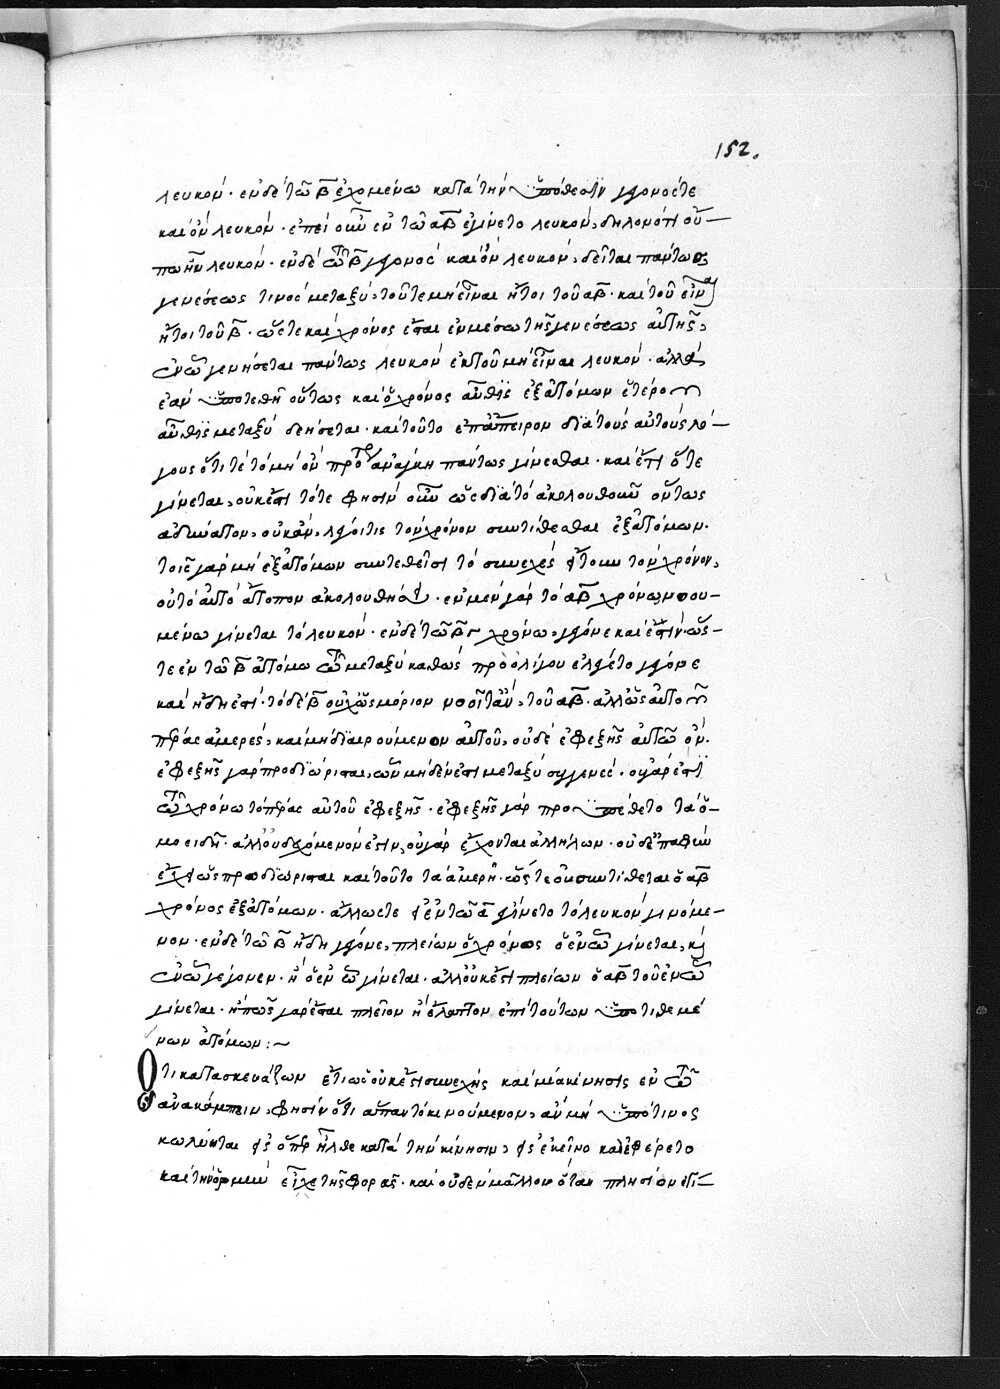 152.
λευκόν· ἐν δὲ τῶ Β ἐχομένω κατὰ τὴν ὑπόθεσιν γέγονέ τε
καὶ ὂν λευκόν· ἐπεὶ οὖν ἐν τῶ αΒ ἐγίνετο λευκόν, δηλονότι οὔ-
πω ἦν λευκόν· ἐν δὲ τῶ Β γέγονός καὶ ὂν λευκόν, δεῖται πάντως
γενέσεως τινος μεταξύ, τοῦ τε μὴ εἶναι ἤτοι τοῦ αΒ· καὶ τοῦ εἶναι
ἤτοι τοῦ Β· ὥστε καὶ χρόνος ἔσται ἐν μέσω τῆς γενέσεως αὐτῆς,
ἐν ὧ γενήσεται πάντως λευκόν ἐκ τοῦ μὴ εἶναι λευκόν· ἀλλὰ
ἐὰν ὑποτεθῆ οὕτως καὶ ὁ χρόνος αὖθις ἐξ ἀτόμων ἕτερον
αὖθις μεταξύ δεήσεται· καὶ τοῦτο ἐπ' ἄπειρον διὰ τοὺς αὐτοὺς λό-
γους ὅτι τε τὸ μὴ ὂν πρότερον ἀνάγκη πάντως γίνεσθαι· καὶ ἔτι ὅτε
γίνεται, οὐκ ἔστι τότε φησὶν οὖν ὡς διὰ τὸ ἀκολουθοῦν οὕτως
ἀδύνατον, οὐκ ἂν, λέγοι τις τὸν χρόνον συντίθεσθαι ἐξ ἀτόμων·
τοῖς γὰρ μὴ ἐξ ἀτόμων συντεθεῖσι τὸ συνεχές ἤτοι τὸν χρόνον,
οὐ τὸ αὐτὸ ἄτοπον ἀκολουθήσει· ἐν μὲν γὰρ τὸ αΒ χρόνω νοου-
μένω γίνεται τὸ λευκόν· ἐν δὲ τῶ ΒΓ χρόνω, γέγονε καὶ ἔστιν ὥς-
τε ἐν τῶ Β ἀτόμω τῶ μεταξύ καθὼς πρὸ ὀλίγου ἐλέγετο γέγονε
καὶ ἤδη ἐστί· τὸ δὲ Β οὐχ ὡς μόριον νοοῖτ' ἂν, τοῦ αΒ· ἀλλ' ὡς αὐτὸ
πέρας ἀμερές, καὶ μὴ διαιρούμενον αὐτοῦ, οὐδὲ ἐφεξῆς αὐτῶ ὂν·
ἐφεξῆς γὰρ προδιώρισται, ὧν μηδέν ἐστι μεταξύ συγγενές· οὐ γάρ ἐστι
τῶ χρόνω τὸ πέρας αὐτοῦ ἐφεξῆς· ἐφεξῆς γὰρ προυπέθετο τὰ ὁ-
μοειδῆ· ἀλλ' οὐδ' ἐχόμενόν ἐστιν, οὐ γὰρ ἔχονται ἀλλήλων·
ἔχει ὡς προδιώρισται καὶ τοῦτο τὰ ἀμερῆ· ὥστε οὐ συντίθεται ὁ αΒ
χρόνος ἐξ ἀτόμων· ἄλλως τε εἰ ἐν τῶ α ἐγίνετο τὸ λευκόν γινόμε-
νον· ἐν δὲ τῶ Β ἤδη γέγονε, πλείων ὁ χρόνος ὁ ἐν ὧ γίνεται, καὶ
ἐν ὧ γέγονεν· ἢ ὁ ἐν ὧ γίνεται· ἀλλ' οὐκ ἔστι πλείων ὁ αΒ τοῦ ἐν ὧ
γίνεται· ἢ πῶς γὰρ ἔσται πλεῖον ἢ ἔλαττον ἐπὶ τούτων ὑποτιθεμέ
νων ἀτόμων:~
Ὅτι κατασκευάζων ἔτι ὡς οὐκ ἔστι συνεχὴς καὶ μία κίνησις ἐν τῶ
ἀνακάμπτειν, φησὶν ὅτι ἅπαν τὸ κινούμενον, ἂν μὴ ὑπό τινος
κωλύηται εἰς ὅπερ ἦλθε κατὰ τὴν κίνησιν, εἰς ἐκεῖνο κατεφέρετο
καὶ τὴν ὁρμὴν εἶχε τῆς φορᾶς· καὶ οὐδὲν μᾶλλον ὅταν πλησίον ἐγί-